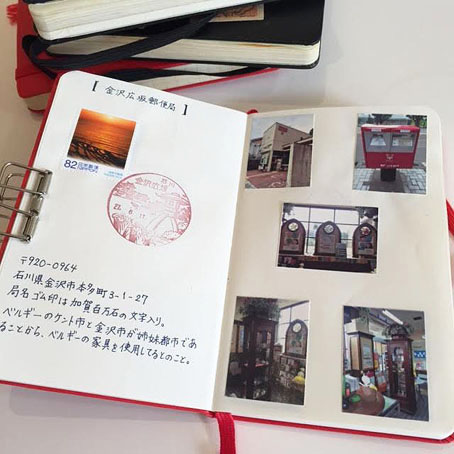 【 金沢広坂郵便局 】
82 日本郵便
NIPPON
石川
金沢広坂
〒920-0964
石川県金沢市本多町3-1-27
局名ゴム印は加賀百万石の文字入り。
ベルギーのケント市と金沢市が姉妹都市であ
ることから、ベルギーの家具を使用してるとのこと。